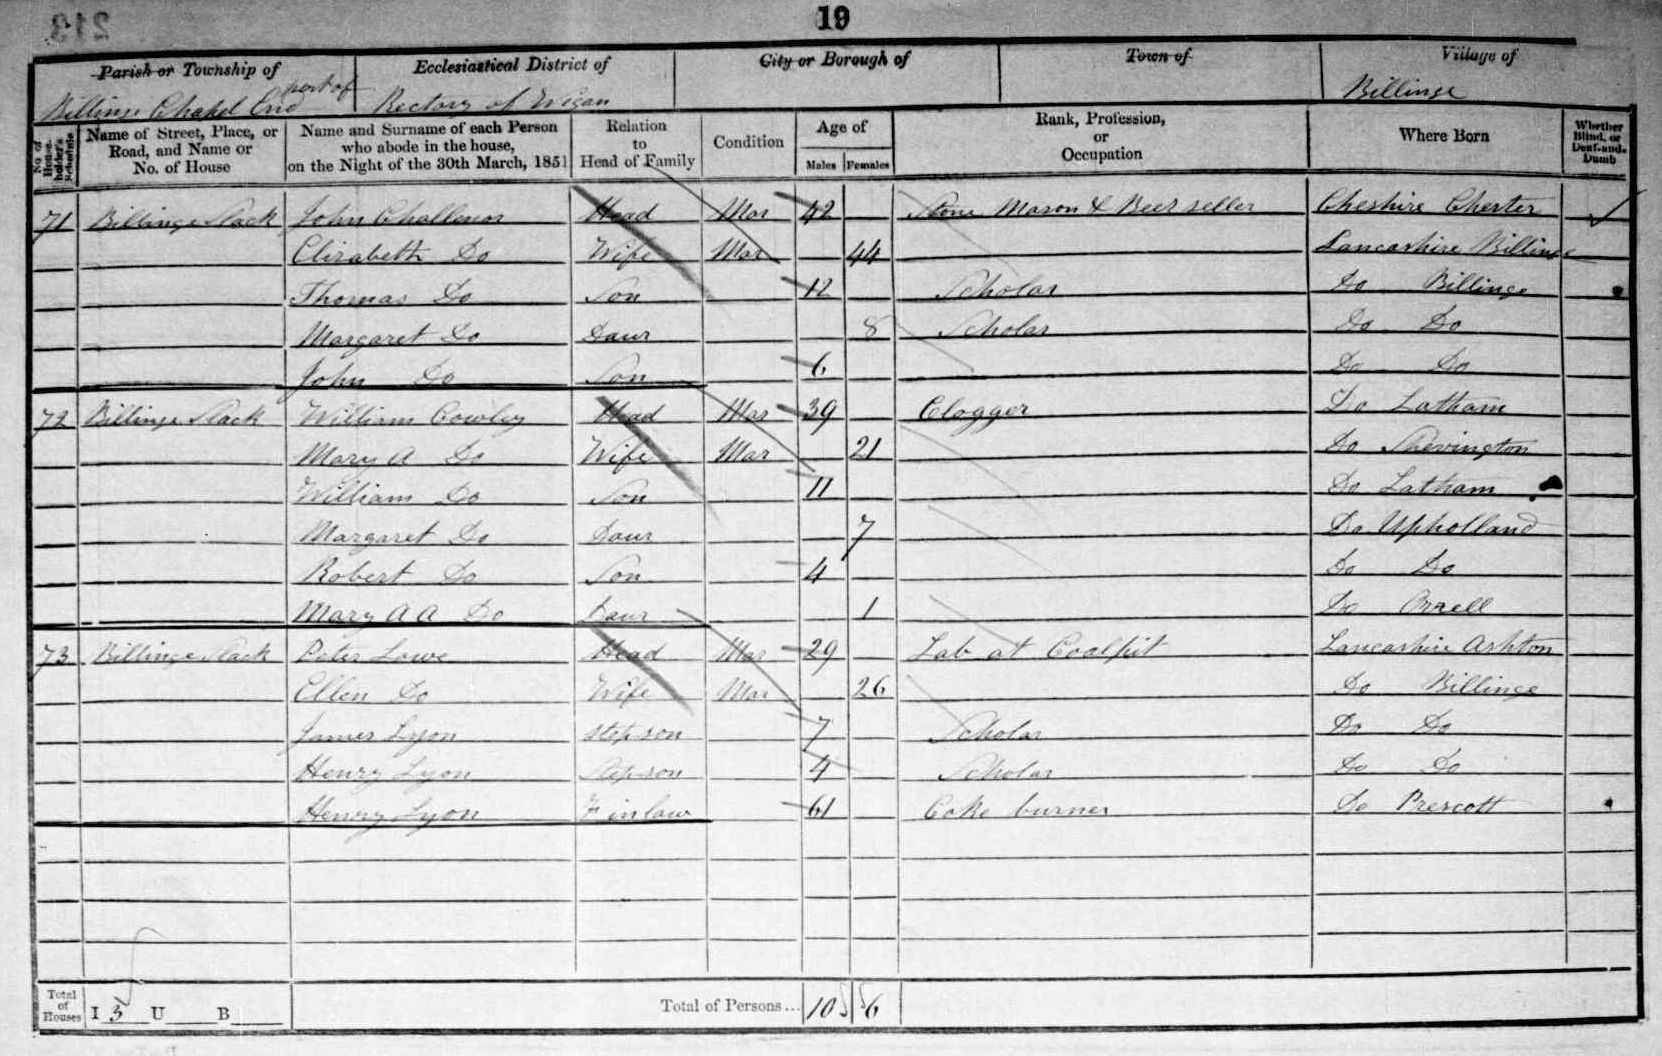 19
213
Parish or Township of Ecclesiastical District of City or Borough of Town of Village of
Billinge Chapel End part of Rectory of Wigan Billinge
No. of House-holder's Schedule Name of Street, Place, or Road, and Name or No. of House Name and Surname of each Person who abode in the house, on the Night of the 30th March, 1851 Relation to Head of Family Condition Age of Males Females Rank, Profession, or Occupation Where Born Whether Blind, or Deaf-and-Dumb
71 Billinge Slack John Challenor Head Mar 42 Stone Mason & Beer seller Cheshire Chester
Elizabeth Do Wife Mar 44 Lancashire Billinge
Thomas Do Son 12 Scholar Do Billinge
Margaret Do Daur 8 Scholar Do Do
John Do Son 6 Do Do
72 Billinge Slack William Cowley Head Mar 39 Clogger Do Latham
Mary A Do Wife Mar 21 Do Shevington
William Do Son 11 Do Latham
Margaret Do Daur 7 Do Upholland
Robert Do Son 4 Do Do
Mary A A Do Daur 1 Do Orrell
73 Billinge Slack Peter Lowe Head Mar 29 Lab at Coalpit Lancashire Ashton
Ellen Do Wife Mar 26 Do Billinge
James Lyon Stepson 7 Scholar Do Do
Henry Lyon Stepson 4 Scholar Do Do
Henry Lyon F inlaw 61 Coke burner Do Prescott
Total of Houses I 3 U B Total of Persons... 10 6